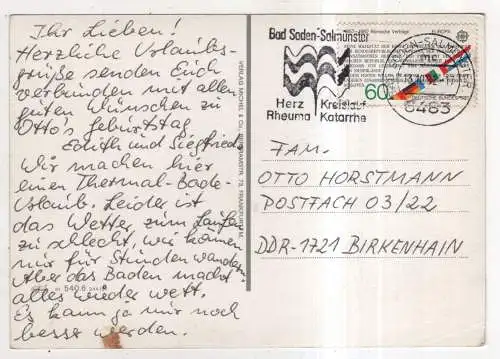 Ihr Lieben!
Herzliche Urlaubs-
grüße senden Euch
verbunden mit allen
guten Wünschen zu
Otto's Geburtstag
Edith und Siegfried
Wir machen hier
einen Thermal-Bade-
Urlaub. Leider ist
das Wetter zum Laufen
zu schlecht, wir können
nur für Stunden wandern.
Aber das Baden macht
alles wieder wett.
Es kann ja nur noch
besser werden.
540.6
VERLAG MICHEL & CO., 73, FRANKFURT/M.
Bad Soden-Salmünster
Herz Kreislauf
Rheuma Katarrhe
1957-1982 Römische Verträge EUROPA
60
DEUTSCHE BUNDESPOST
6483
FAM.
OTTO HORSTMANN
POSTFACH 03/22
DDR-1721 BIRKENHAIN